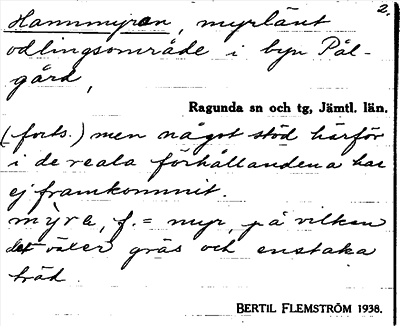 2.
Hammmyran, myrlänt
odlingsområde i byn Pål-
gård,
Ragunda sn och tg, Jämtl. län.
(forts.) men något stöd härför
i de reala förhållandena har
ej framkommit.
mýra, f. = myr, på vilken
det växer gräs och enstaka
träd.
BERTIL FLEMSTRÖM 1938.